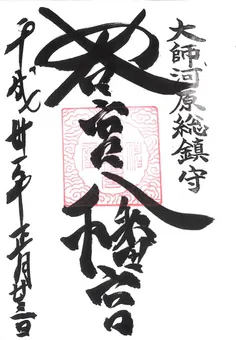 大師河原総鎮守
若宮八幡宮
平成廿一年正月廿三日